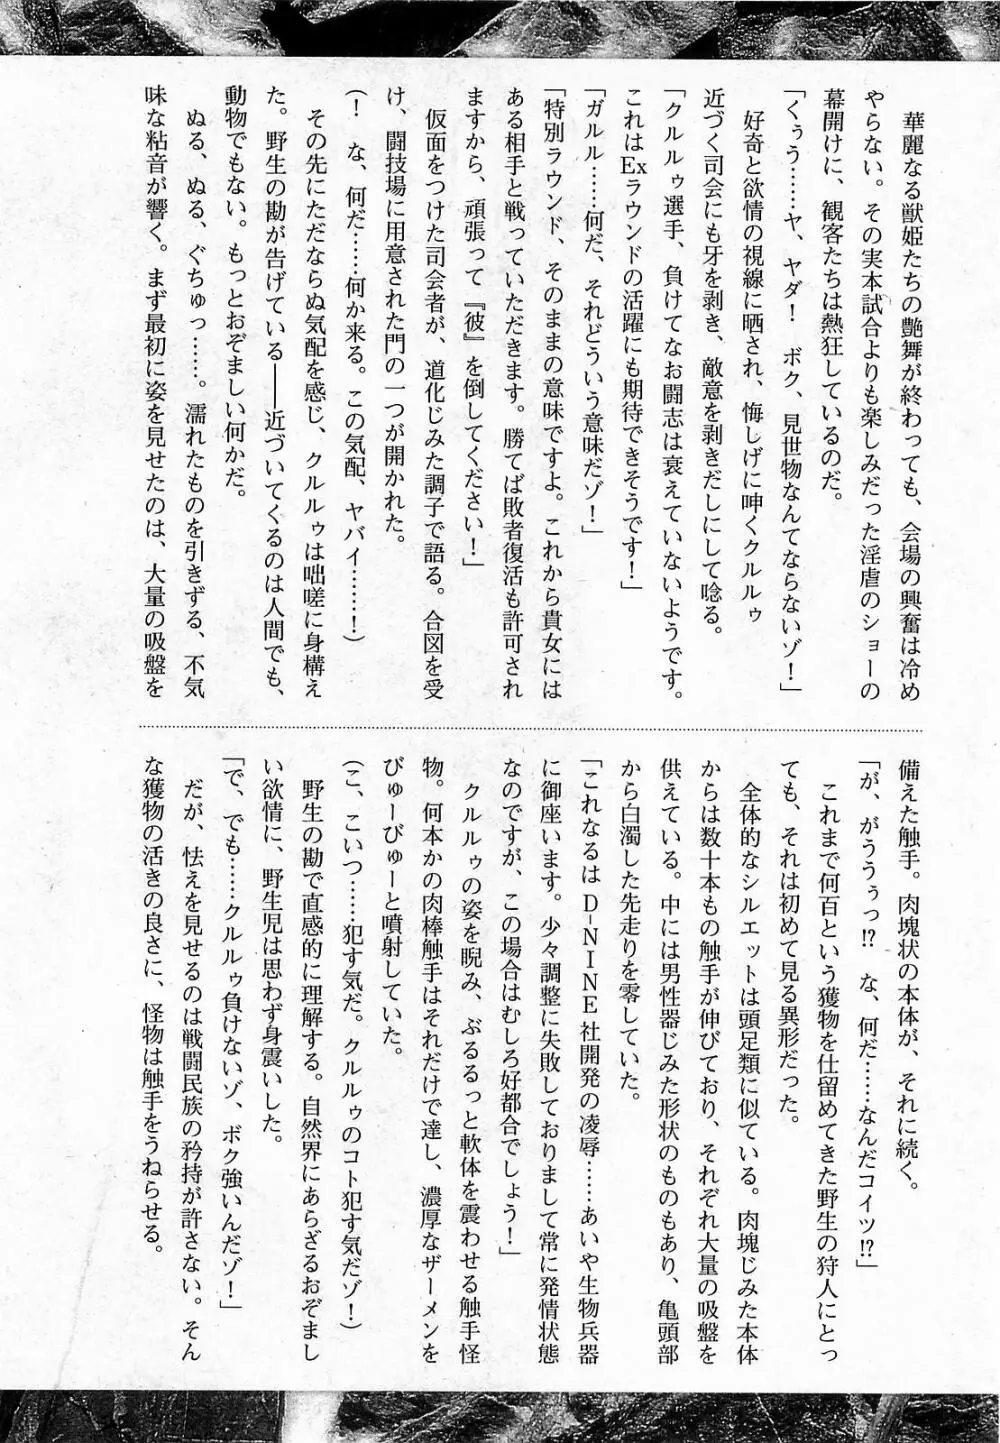 華麗なる獣姫たちの艶舞が終わっても、会場の興奮は冷め
やらない。その実本試合よりも楽しみだった淫虐のショーの
幕開けに、観客たちは熱狂しているのだ。
「くぅう……ヤ、ヤダ！　ボク、見世物なんてならないゾ！」
好奇と欲情の視線に晒され、悔しげに呻くクルルゥ
近づく司会にも牙を剥き、敵意を剥きだしにして唸る。
「クルルゥ選手、負けてなお闘志は衰えていないようです。
これはExラウンドの活躍にも期待できそうです！」
「ガルル……何だ、それどういう意味だゾ！」
「特別ラウンド、そのままの意味ですよ。これから貴女には
ある相手と戦っていただきます。勝てば敗者復活も許可され
ますから、頑張って『彼』を倒してください！」
仮面をつけた司会者が、道化じみた調子で語る。合図を受
け、闘技場に用意された門の一つが開かれた。
（！　な、何だ……何か来る。この気配、ヤバイ……！）
その先にただならぬ気配を感じ、クルルゥは咄嗟に身構え
た。野生の勘が告げている――近づいてくるのは人間でも、
動物でもない。もっとおぞましい何かだ。
ぬる、ぬる、ぐちゅっ……。濡れたものを引きずる、不気
味な粘音が響く。まず最初に姿を見せたのは、大量の吸盤を
備えた触手。肉塊状の本体が、それに続く。
「が、がううぅっ!?　な、何だ……なんだコイツ!?」
これまで何百という獲物を仕留めてきた野生の狩人にとっ
ても、それは初めて見る異形だった。
全体的なシルエットは頭足類に似ている。肉塊じみた本体
からは数十本もの触手が伸びており、それぞれ大量の吸盤を
供えている。中には男性器じみた形状のものもあり、亀頭部
から白濁した先走りを零していた。
「これなるはD-NINE社開発の凌辱……あいや生物兵器
に御座います。少々調整に失敗しておりまして常に発情状態
なのですが、この場合はむしろ好都合でしょう！」
クルルゥの姿を睨み、ぶるるっと軟体を震わせる触手怪
物。何本かの肉棒触手はそれだけで達し、濃厚なザーメンを
びゅーびゅーと噴射していた。
（こ、こいつ……犯す気だ。クルルゥのコト犯す気だゾ！）
野生の勘で直感的に理解する。自然界にあらざるおぞまし
い欲情に、野生児は思わず身震いした。
「で、でも……クルルゥ負けないゾ、ボク強いんだゾ！」
だが、怯えを見せるのは戦闘民族の矜持が許さない。そん
な獲物の活きの良さに、怪物は触手をうねらせる。